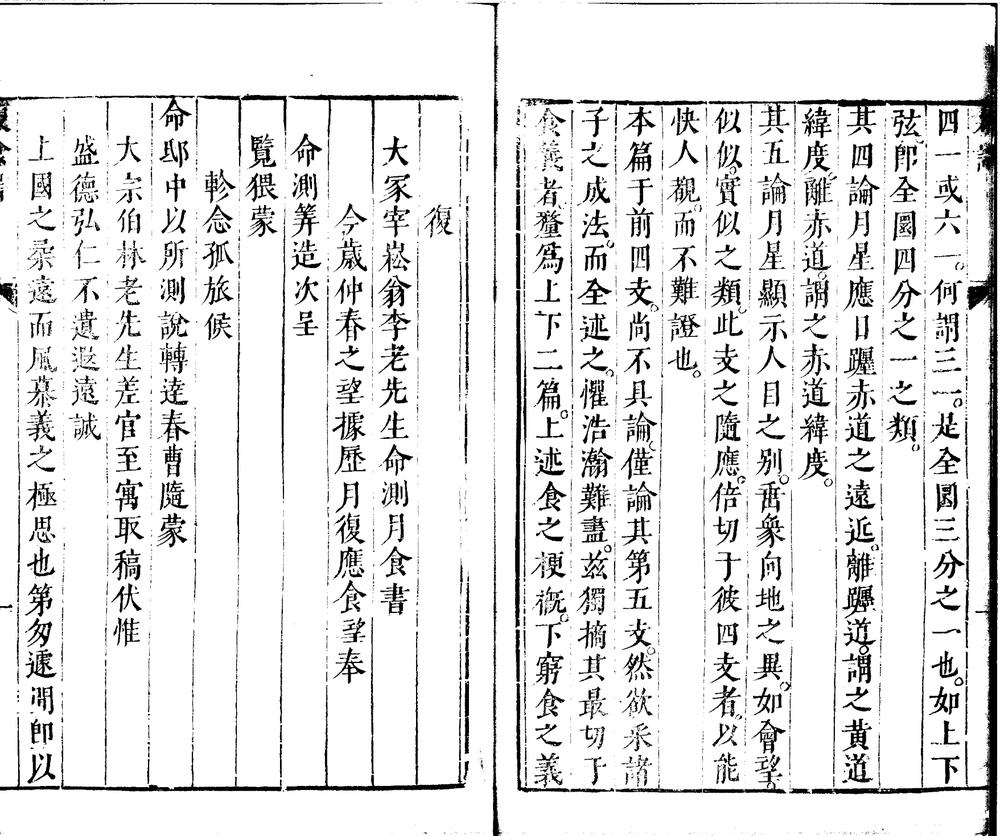 四一或六一。何謂三一。是全圜三分之一也。如上下
弦。卽全圜四分之一之類。
其四論月星應日躔赤道之遠近。離躔道。謂之黃道
緯度。離赤道。謂之赤道緯度。
其五論月星顯示人目之別。啚象向地之異。如會望。
似似。實似之類。此支之隨應。倍切于彼四支者。以能
快人觀。而不難證也。
本篇于前四支。尚不具論。僅論其第五支。然欲采諸
子之成法。而全述之。懼浩瀚難盡。茲獨摘其最切于
食義者。釐爲上下二篇。上述食之梗槪。下窮食之義
復
大冢宰崧翁李老先生命測月食書
今歲仲春之望據歷月復應食望奉
命測筭造次呈
覽猥蒙
軫念孤旅候
命邸中以所測說轉達春曹隨蒙
大宗伯林老先生差官至寓取稿伏惟
盛德弘仁不遺遐遠誠
上國之柔遠而風慕義之極思也第匆遽間卽以